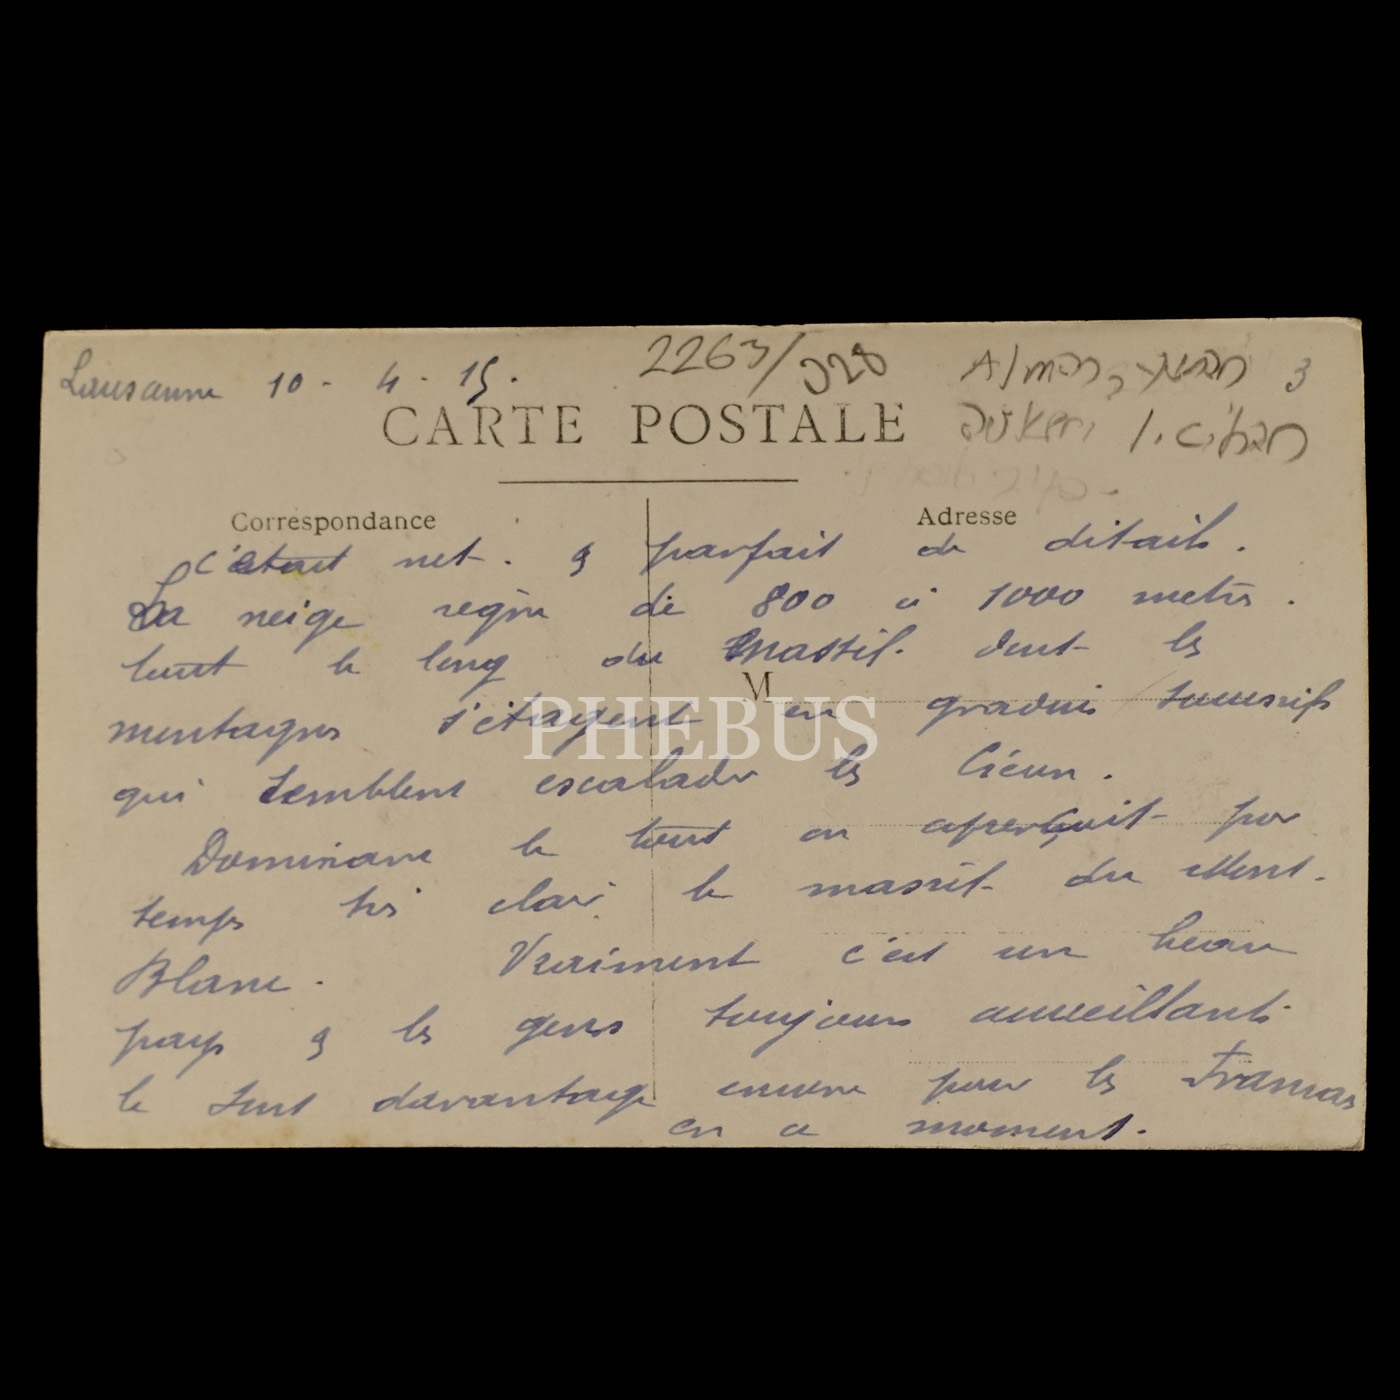 Lausanne 10 - 4 - 15.
2263/328
Alman, 3
asker, 1. cihan
CARTE POSTALE
Correspondance
Adresse
c'était net. & parfait de détails.
La neige règne de 800 à 1000 mètres.
tout le long du Massif. dont les
M
montagnes s'étagent en gradins successifs
PHEBUS
qui semblent escalader les Cieux.
Dominant le tout on aperçoit par
temps très clair le massif du Mont.
Blanc. Vraiment c'est un beau
pays & les gens toujours accueillants
le sont davantage encore pour les Français
en ce moment.